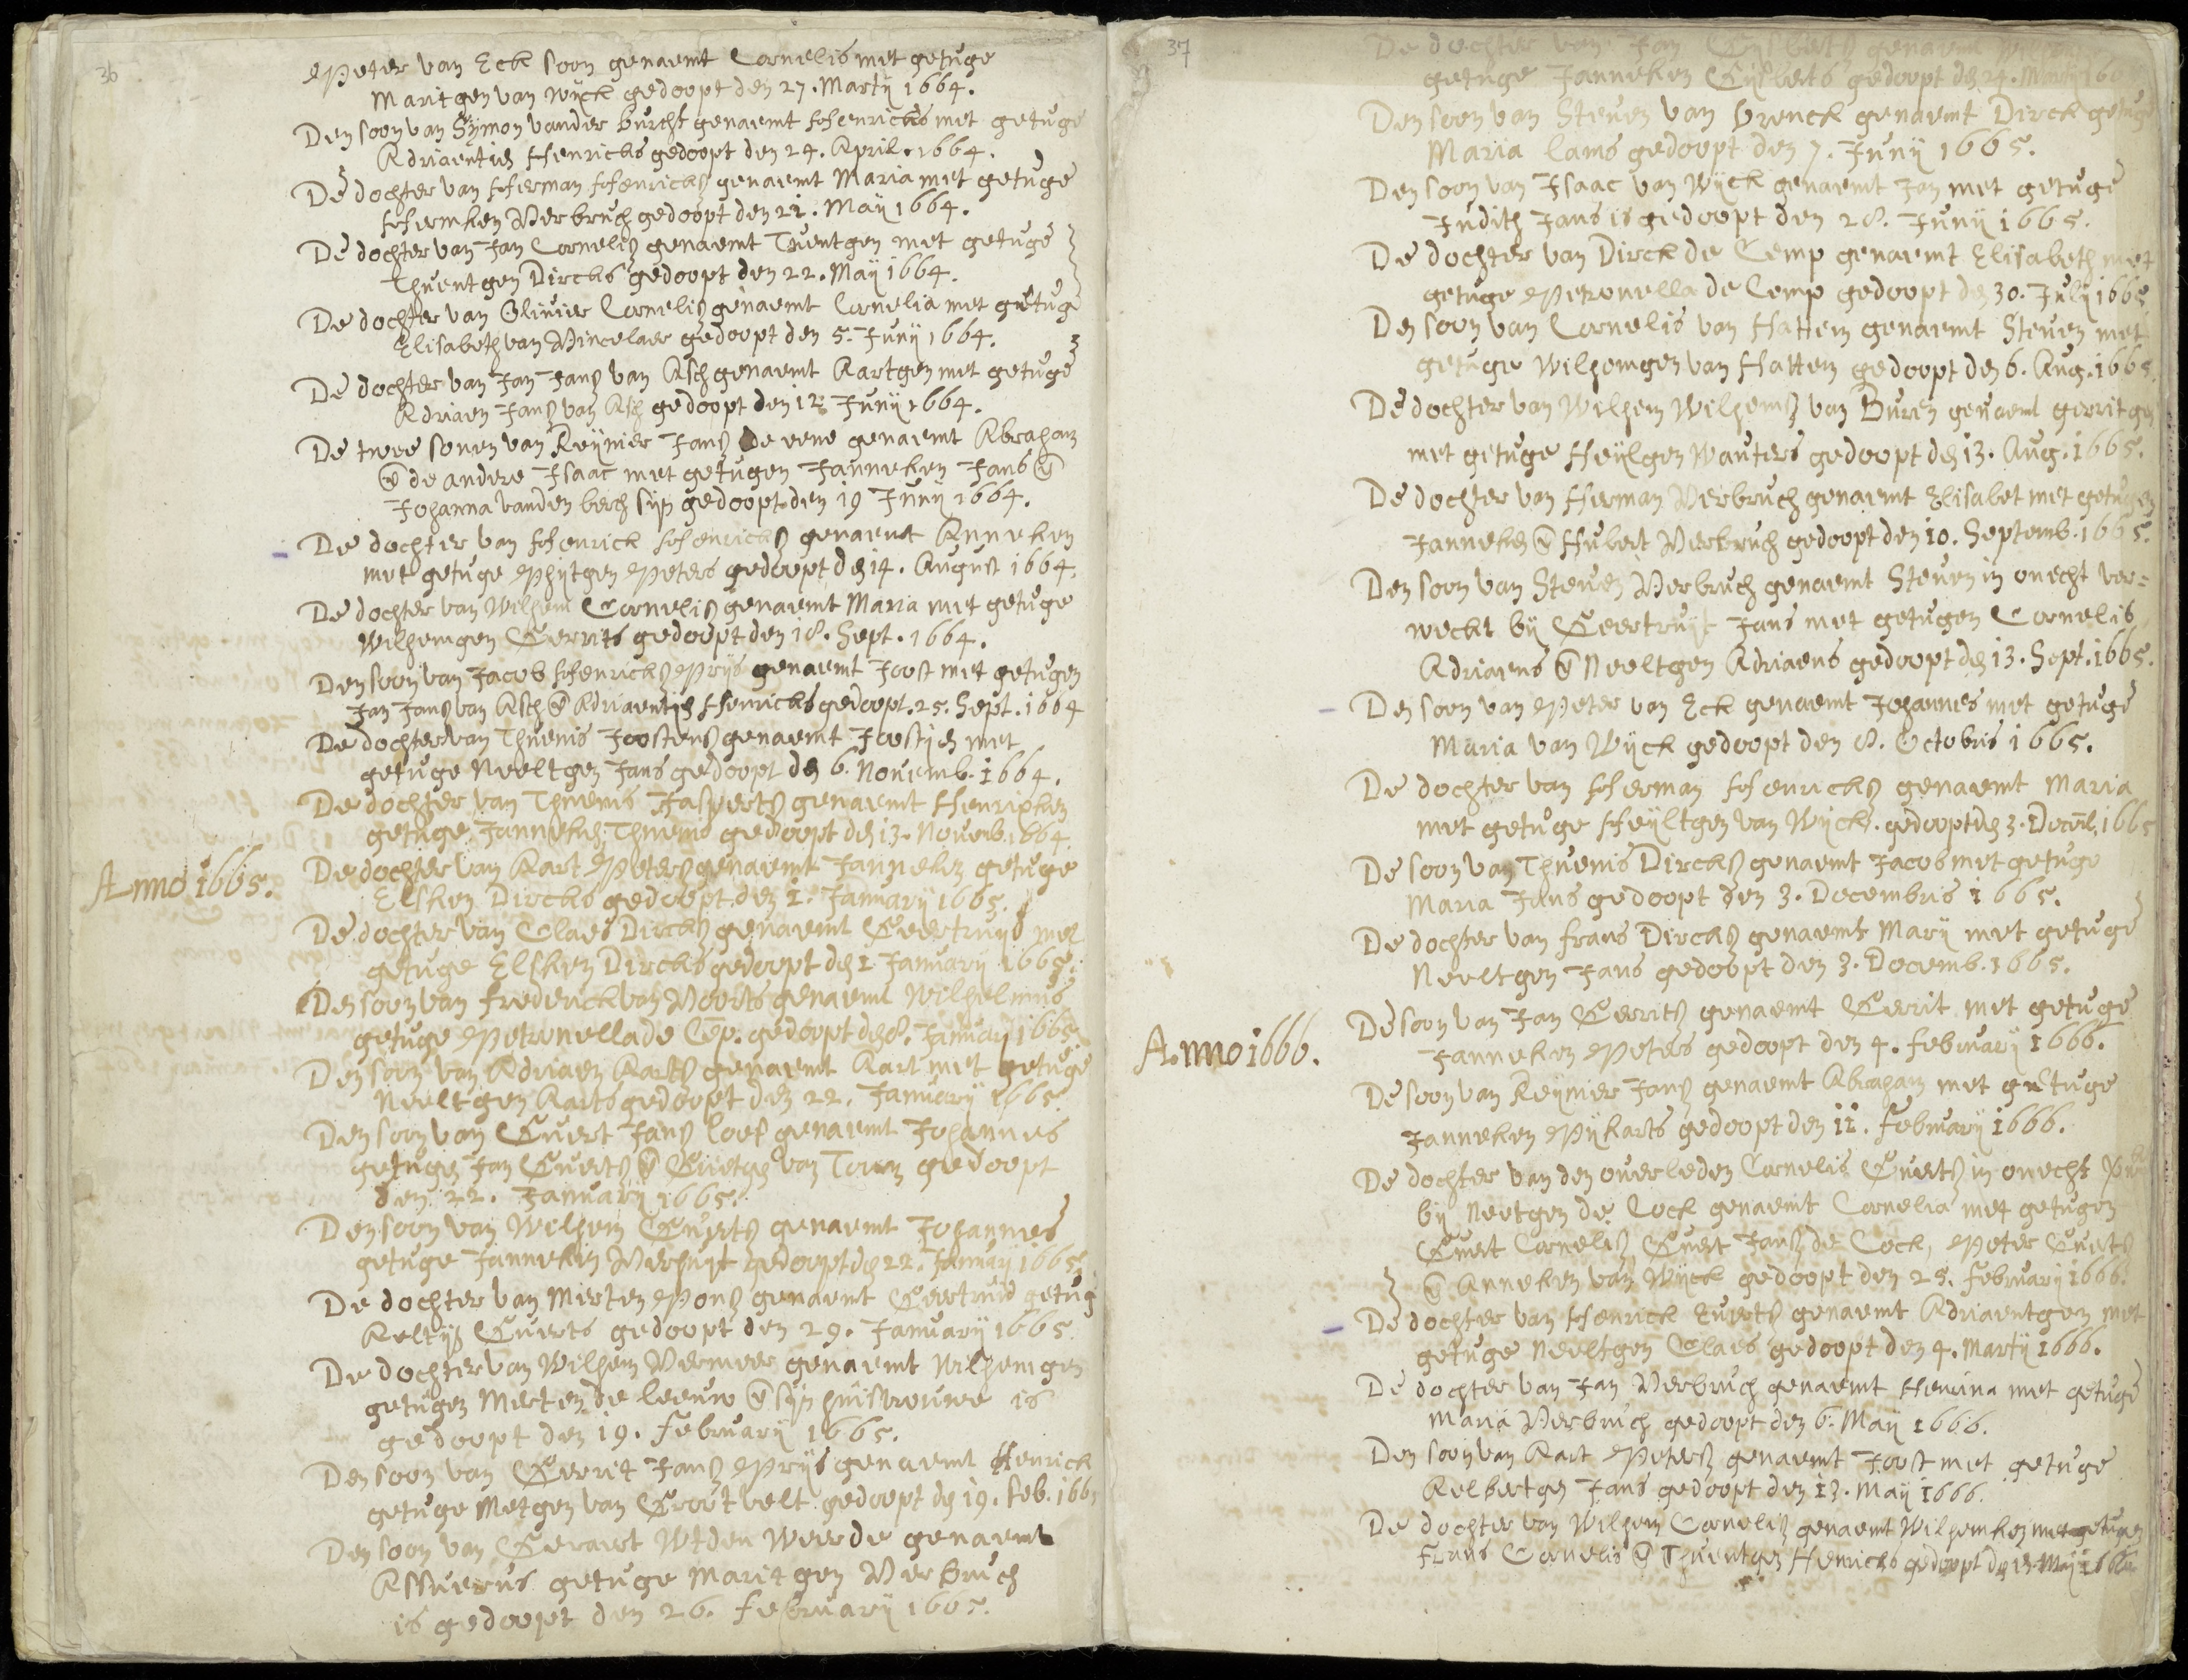 36
Peter van Eck soon genaemt Cornelis met getuge
Maritgen van Wyck gedoopt den 27. Martij 1664.
Den soon van Sijmon vander burcht genaemt Henricus met getuge
Adriaentien Henricks gedoopt den 24. April. 1664.
De dochter van Herman Henricks genaemt Maria met getuge
Hermken Verbruch gedoopt den 22. Maij 1664.
De dochter van Jan Cornelisz genaemt Tuentgen met getuge
Thuentgen Dircks gedoopt den 22. Maij 1664.
De dochter van Olivier Cornelisz genaemt Cornelia met getuge
Elisabeth van Mincelaer gedoopt den 5. Junij 1664.
De dochter van Jan Jansz van Asch genaemt Aartgen met getuge
Adriaen Jansz van Asch gedoopt den 12 Junij 1664.
De twee sonen van Reijnier Jansz de eene genaemt Abraham
en de andere Isaac met getugen Janneken Jans en
Johanna vanden berch sijn gedoopt den 19 Junij 1664.
De dochter van Henrick Henricksz genaemt Anneken
met getuge Phijtgen Peters gedoopt den 14. August 1664.
De dochter van Wilhem Cornelisz genaemt Maria met getuge
Wilhemgen Gerrits gedoopt den 18. Sept. 1664.
Den soon van Jacob Henricksz Prijs genaemt Joost met getugen
Jan Jansz van Asch en Adriaentien Henricks gedoopt. 25. Sept. 1664
De dochter van Thuenis Joostensz genaemt Joostjen met
getuge Neeltgen Jans gedoopt den 6. Novemb. 1664.
De dochter van Thuenis Jaspertsz genaemt Henrixken
getuge Janneken Thuenis gedoopt den 13. Novemb. 1664.
Anno 1665.
De dochter van Aart Petersz genaemt Janneken getuge
Elsken Dircks gedoopt den 1. Januarij 1665.
De dochter van Claes Dircksz genaemt Geertruijd met
getuge Elsken Dircks gedoopt den 1 Januarij 1665.
Den soon van Frederick van Voorts genaemt Wilhelmus
getuge Petronella de Cēp. gedoopt den 8. Januarij 1665.
Den soon van Adriaen Aartsz genaemt Aart met getuge
Neeltgen Aarts gedoopt den 22. Januarij 1665.
Den soon van Evert Jansz Loef genaemt Johannes
getugen Jan Evertsz en Evertgen van Toorn gedoopt
den 22. Januarij 1665.
Den soon van Wilhem Evertsz genaemt Johannes
getuge Janneken Verhuyt gedoopt den 22. Januarij 1665.
De dochter van Merten Ponsz genaemt Geertruid getug
Aeltijen Everts gedoopt den 29. Januarij 1665
De dochter van Wilhem Vermeer genaemt Wilhemgen
getugen Merten de leeuw en sijn huisvrouwe is
gedoopt den 19. Februarij 1665.
Den soon van Gerrit Jansz Prijs genaemt Henrick
getuge Metgen van Grootvelt gedoopt den 19. Feb. 1665
Den soon van Geraert Wtden Weerde genaemt
Assuerus getuge Maritgen Verbruch
is gedoopt den 26. Februarij 1665.
37
De dochter van Jan Gijsbertsz genaemt
getuge Janneken Gijsberts gedoopt den 24. 
Den soon van Steven van Brenck genaemt Dirck getuge
Maria Lams gedoopt den 7. Junij 1665.
Den soon van Isaac van Wijck genaemt Jan met getuge
Judith Jans is gedoopt den 28. Junij 1665.
De dochter van Dirck de Cemp genaemt Elisabeth met
getuge Petronella de Cemp gedoopt den 30. Julij 1665
Den soon van Cornelis van Hattem genaemt Steven met
getuge Wilhemgen van Hattem gedoopt den 6. Aug. 1665.
De dochter van Wilhem Wilhemsz van Buren genaemt gerritgen
met getuge Heijlgen Wauters gedoopt den 13. Aug. 1665.
De dochter van Herman Verbruch genaemt Elisabet met getugen
Janneken en Hubert Verbruch gedoopt den 10. Septemb. 1665.
Den soon van Steven Verbruch genaemt Steven in onecht ver=
weckt bij Geertruijt Jans met getugen Cornelis
Adriaens en Neeltgen Adriaens gedoopt den 13. Sept. 1665.
Den soon van Peter van Eck genaemt Johannes met getuge
Maria van Wijck gedoopt den 8. Octobris 1665.
De dochter van Herman Henricksz genaemt Maria
met getuge Heijltgen van Wijck. gedoopt den 3. Decemb. 1665
De soon van Thuenis Dircksz genaemt Jacob met getuge
Maria Jans gedoopt den 3. Decembris 1665.
De dochter van Frans Dircksz genaemt Marij met getuge
Neeltgen Jans gedoopt den 3. Decemb. 1665.
Anno 1666.
De soon van Jan Gerritsz genaemt Gerrit met getuge
Janneken Peters gedoopt den 4. Februarij 1666.
De soon van Reijnier Jansz genaemt Abraham met getuge
Janneken Pijkarts gedoopt den 11. Februarij 1666.
De dochter van den overleden Cornelis Evertsz in onecht
bij Neetgen de Cock genaemt Cornelia met getugen
Evert Cornelisz Evert Jansz de Cock, Peter Evertsz
en Anneken van Wijck gedoopt den 25. Februarij 1666.
De dochter van Henrick Evertsz genaemt Adriaentgen met
getuge Neeltgen Claes gedoopt den 4. Martij 1666.
De dochter van Jan Verbruch genaemt Henrina met getuge
Maria Verbruch gedoopt den 6. Maij 1666.
Den soon van Aart Petersz genaemt Joost met getuge
Aelbertgen Jans gedoopt den 13. Maij 1666.
De dochter van Wilhem Cornelisz genaemt Wilhemken met getugen
Frans Cornelis en Thuentgen Henricks gedoopt den 13. Maij 1666